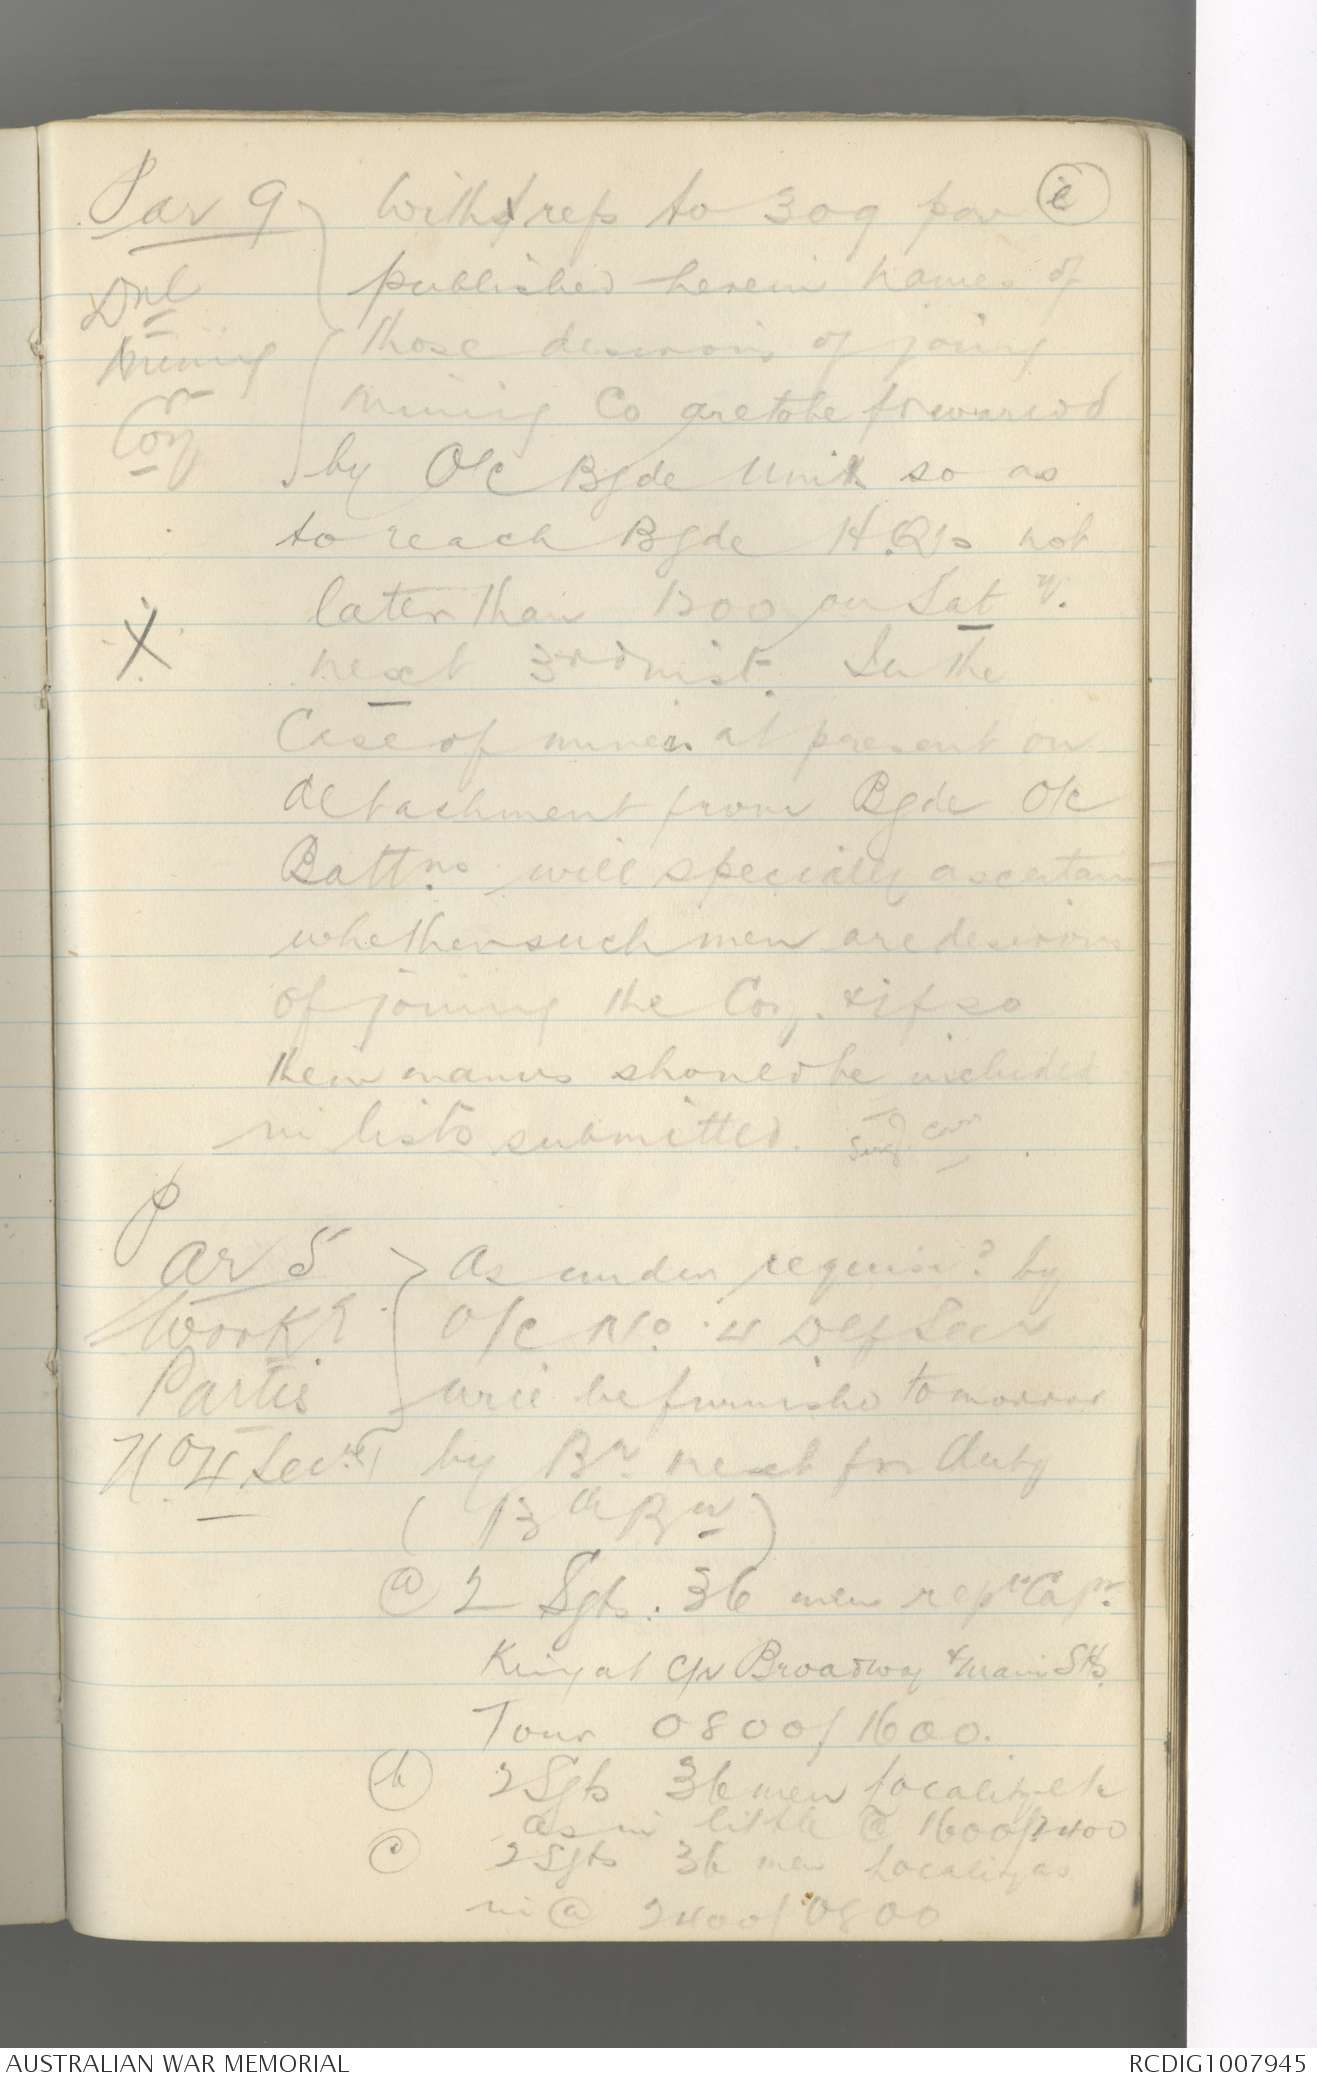 Par 9 } With ref to 309 par
published herein names of
Mining those desirous of joing
Coy mining Co are to be forwarded
by O/C Bgde Units so as
to reach Bgde H.Qrs not
later than 1200 on Saty.
X next 3rd inst. In the
Case of miners at present on
detachment from Bgde O/c
Battns. will specially ascertain
whether such men are desirous
of joining the Coy. & if so
their names should be included
in lists submitted.
Par 5 } As under requis? by
Workg O/C No. 4 Def Secn
Parties will be furnishd tomorrow
No 4 Secn by Bn. next for duty
(13th Bn)
(a) 2 Sgts. 36 men rept Capt.
King at c/r Broadway & Main Sts.
Tour 0800/1600.
(b) 2 Sgts 36 men locality etc
as in little (a) 1600/2400
(c) 2 Sgts 36 men locality as
in (a) 2400/0800
AUSTRALIAN WAR MEMORIAL
RCDIG1007945